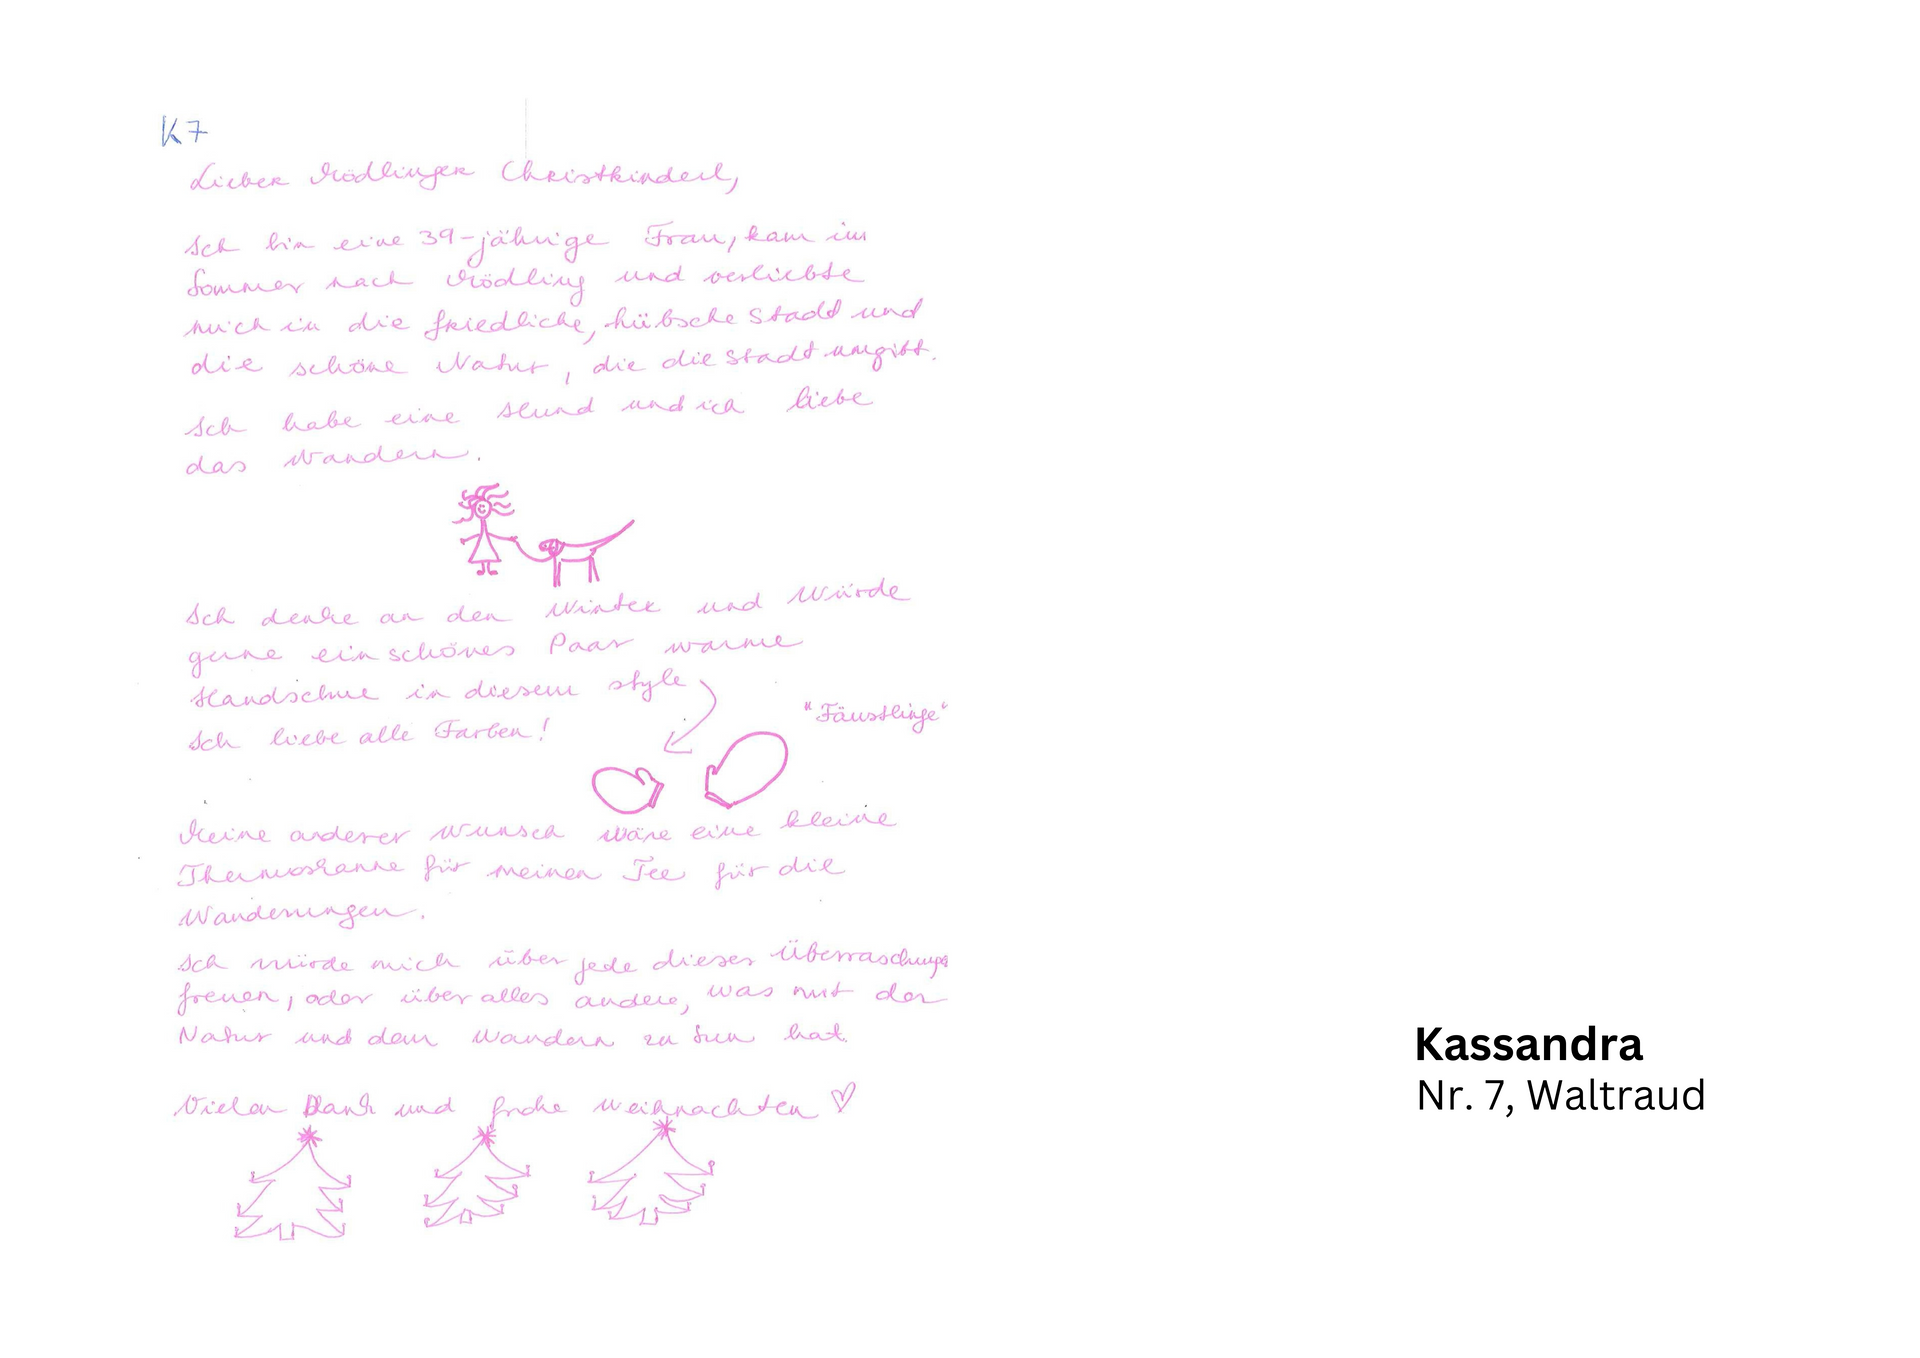 K7
Lieber Mödlinger Christkinderl,
Ich bin eine 39-jährige Frau, kam im
Sommer nach Mödling und verliebte
mich in die friedliche, hübsche Stadt und
die schöne Natur, die die Stadt umgibt.
Ich habe eine Hund und ich liebe
das Wandern.
Ich denke an den Winter und würde
gerne ein schönes Paar warme
Handschue in diesem style
"Fäustlinge"
Ich liebe alle Farben!
Meine anderer Wunsch wäre eine kleine
Thermoskanne für meinen Tee für die
Wanderungen.
Ich würde mich über jede dieser Überraschungen
freuen, oder über alles andere, was mit der
Natur und dem Wandern zu tun hat.
Vielen Dank und frohe Weihnachten ♡
Kassandra
Nr. 7, Waltraud